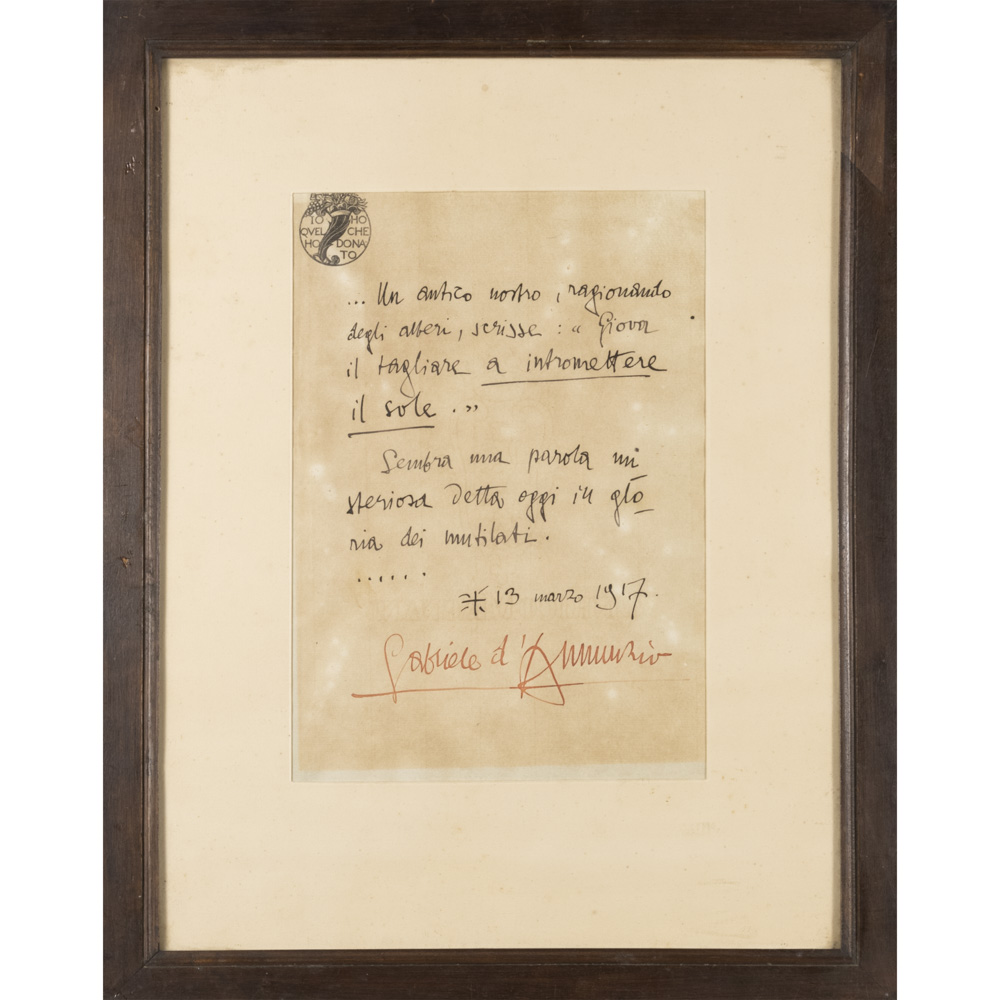 IO HO
QVEL CHE
HO DONA
TO
... Un antico nostro, ragionando
degli alberi, scrisse: « Giova
il tagliare a intromettere
il sole. »
Sembra una parola mi
steriosa detta oggi in glo
ria dei mutilati.
......
13 marzo 1917.
Gabriele d'Annunzio